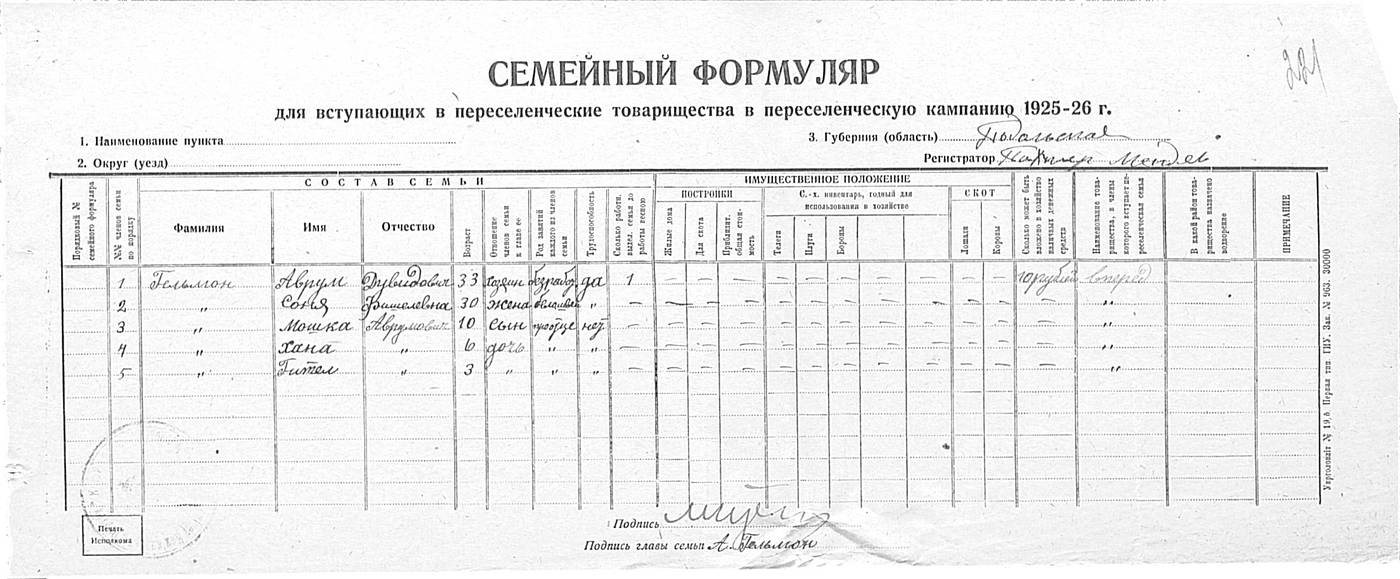 221
СЕМЕЙНЫЙ ФОРМУЛЯР
для вступающих в переселенческие товарищества в переселенческую кампанию 1925-26 г.
1. Наименование пункта
3. Губерния (область) Подольская
2. Округ (уезд)
Регистратор Мендель
СОСТАВ СЕМЬИ
ИМУЩЕСТВЕННОЕ ПОЛОЖЕНИЕ
Порядковый № семейного формуляра
№№ членов семьи по порядку
Фамилия
Имя
Отчество
Возраст
Отношение членов семьи к главе ее
Род занятий каждого из членов семьи
Трудоспособность
Сколько работн. выдел. семья до работы весною
ПОСТРОЙКИ
Жилые дома
Для скота
Приблизит. общая стоимость
С.-х. инвентарь, годный для использования в хозяйстве
Телеги
Плуги
Бороны
СКОТ
Лошади
Коровы
Сколько может быть вложено в хозяйство наличных денежных средств
Наименование товарищества, в члены которого вступает переселенческая семья
В какой район товарищества назначено водворение
ПРИМЕЧАНИЕ
1 Гельмон Аврум Дувидович 33 хозяин безработ да 1 — — — — — — — — — — — рублей вперед
2 „ Соня Фишелевна 30 жена „ — — — — — — — — — — — — „
3 „ Мошка Аврумович 10 сын нет — — — — — — — — — — — — „
4 „ Хана „ 6 дочь „ „ — — — — — — — — — — — — „
5 „ Гител „ 3 „ „ „ — — — — — — — — — — — — „
Печать
Исполкома
Подпись
Подпись главы семьи А. Гельмон
Укрголовліт № 19, Первая тип. ГИУ. Зак. № 963. 30000